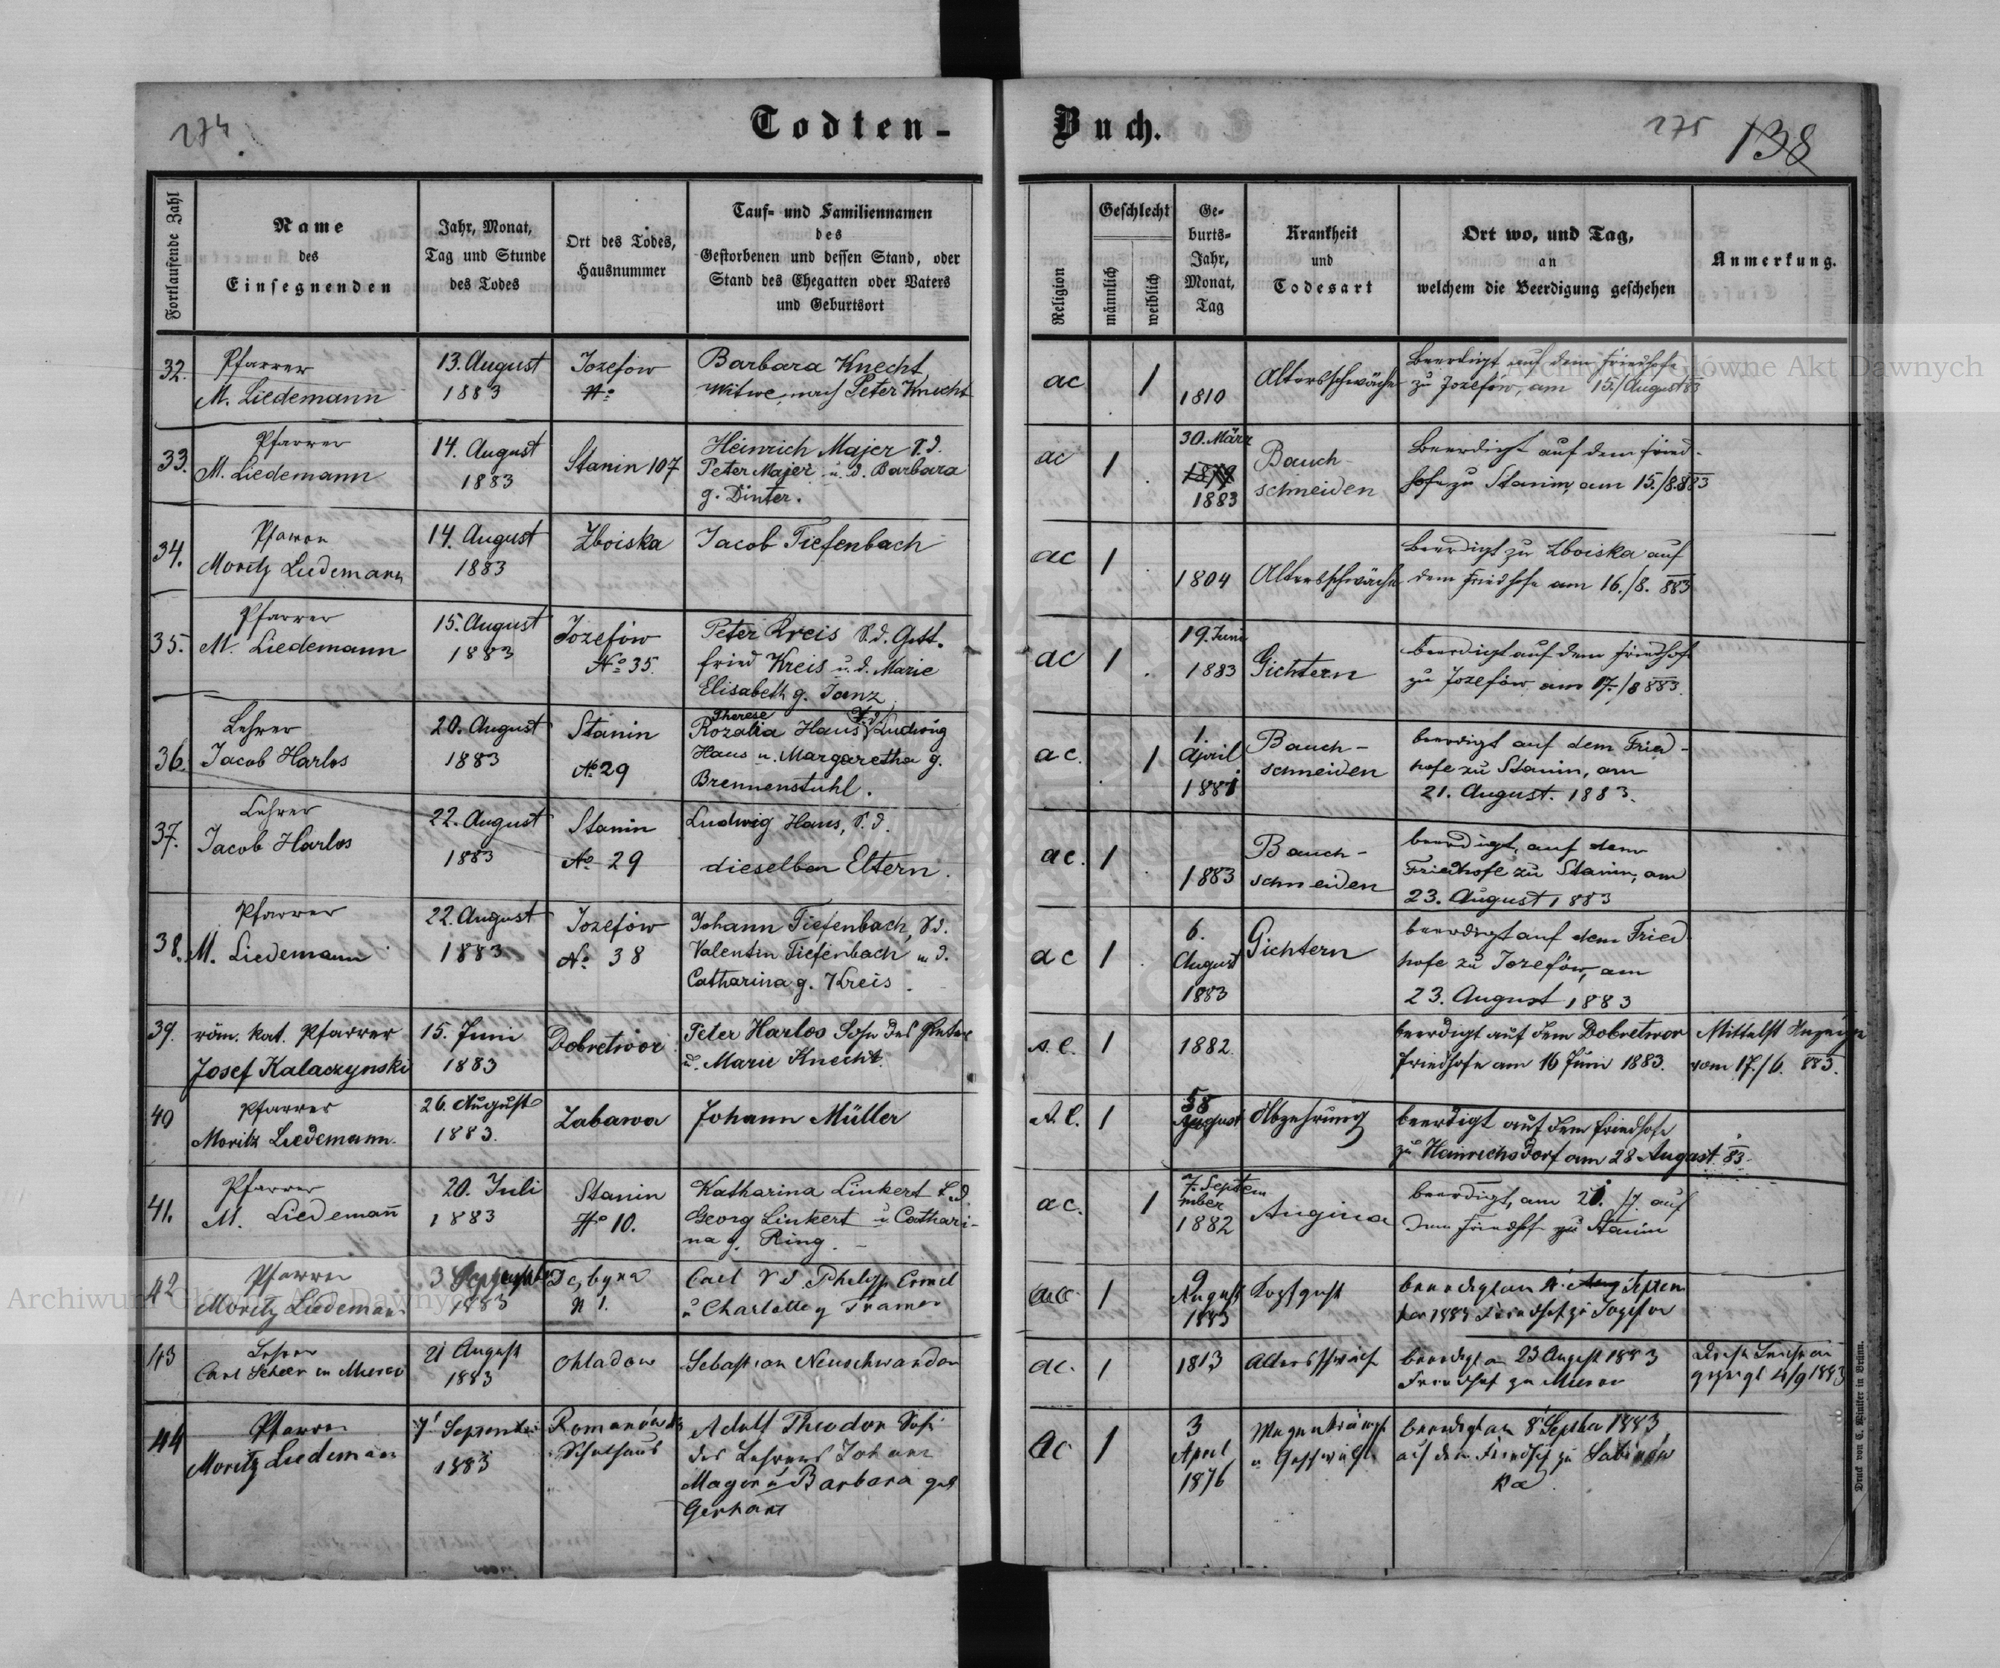 274.
Todten-
Buch.
275
138
Fortlaufende Zahl
Name
des
Einsegnenden
Jahr, Monat,
Tag und Stunde
des Todes
Ort des Todes,
Hausnummer
Tauf- und Familiennamen
des
Gestorbenen und dessen Stand, oder
Stand des Ehegatten oder Vaters
und Geburtsort
Religion
Geschlecht
männlich
weiblich
Ge-
burts-
Jahr,
Monat,
Tag
Krankheit
und
Todesart
Ort wo, und Tag,
an
welchem die Beerdigung geschehen
Anmerkung.
32.
Pfarrer
M. Liedemann
13. August
1883
Jozefow
No
Barbara Knecht,
Witwe nach Peter Knecht
ac
1
1810
Altersschwäche
Beerdigt auf dem Friedhofe
zu Jozefow, am 15./August 83
33.
Pfarrer
M. Liedemann
14. August
1883
Stanin 107
Heinrich Majer S. d.
Peter Majer u. d. Barbara
g. Dinter.
ac
1
30. März
1883
Bauch-
schneiden
Beerdigt auf dem Fried-
hofe zu Stanin, am 15./8. 883
34.
Pfarrer
Moritz Liedemann
14. August
1883
Zboiska
Jacob Tiefenbach
ac
1
1804
Altersschwäche
Beerdigt zu Zboiska auf
dem Friedhofe am 16./8. 883
35.
Pfarrer
M. Liedemann
15. August
1883
Jozefow
No 35.
Peter Kreis S. d. Gott-
fried Kreis u. d. Marie
Elisabeth g. Janz
ac
1
19. Juni
1883
Gichtern
beerdigt auf dem Friedhofe
zu Jozefów am 17./8 883.
36
Lehrer
Jacob Harlos
20. August
1883
Stanin
No 29
Therese
Rozalia Haus T. d. Ludwig
Haus u. Margaretha g.
Brennenstuhl.
ac.
1
1.
April
1881
Bauch-
schneiden
beerdigt auf dem Fried-
hofe zu Stanin, am
21. August. 1883.
37.
Lehrer
Jacob Harlos
22. August
1883
Stanin
No 29
Ludwig Haus, S. d.
dieselben Eltern.
ac.
1
1883
Bauch-
schneiden
beerdigt, auf dem
Friedhofe zu Stanin, am
23. August 1883
38.
Pfarrer
M. Liedemann
22. August
1883
Jozefów
No 38
Johann Tiefenbach, S. d.
Valentin Tiefenbach u. d.
Catharina g. Kreis.
ac
1
6.
August
1883
Gichtern
beerdigt auf dem Fried-
hofe zu Jozefów, am
23. August 1883
39.
röm. kat. Pfarrer
Josef Kalaczynski
15. Juni
1883
Dobretwor
Peter Harlos Sohn des Peter
u. Marie Knecht.
A. C.
1
1882.
beerdigt auf dem Dobretwor
Friedhofe am 16 Juni 1883.
Mittelst Anzeige
vom 17./6. 883.
40
Pfarrer
Moritz Liedemann.
26. August
1883.
Zabawa
Johann Müller
A. C.
1
58
Abzehrung
beerdigt auf dem Friedhofe
zu Heinrichsdorf am 28 August 83.
41.
Pfarrer
M. Liedemann
20. Juli
1883
Stanin
No 10.
Katharina Linkert T. d.
Georg Linkert u Cathari-
na g. Ring.
ac.
1
7. Septem
mber
1882
Angina
beerdigt, am 21. /7. auf
dem Friedhof zu Stanin
42
Pfarrer
Moritz Liedemann
3 September
1883
N 1.
Carl S d. Philipp
u Charlotte g Kramer
ac
1
9
August
1883
beerdigt am 4. Septem
ber 1883 Friedhof zu Jozefow
43
Lehrer
21 August
1883
Ohladow
Sebastian Neuschwander
ac.
1
1813
Altersschwäche
beerdigt am 23 August 1883
Friedhof zu
4/9 1883
44
Pfarrer
Moritz Liedemann
7 September
1883
Romanówka
Schulhaus
Adolf Theodor Sohn
des Lehrers Johann
Mager u Barbara geb
Gerhart
ac
1
3
April
1876
Magenkrämpfe
beerdigt am 8 September 1883
auf dem Friedhof zu Sabinów
ka.
Druck von C. Winiker in Brünn.
Archiwum Główne Akt Dawnych
Archiwum Główne Akt Dawnych